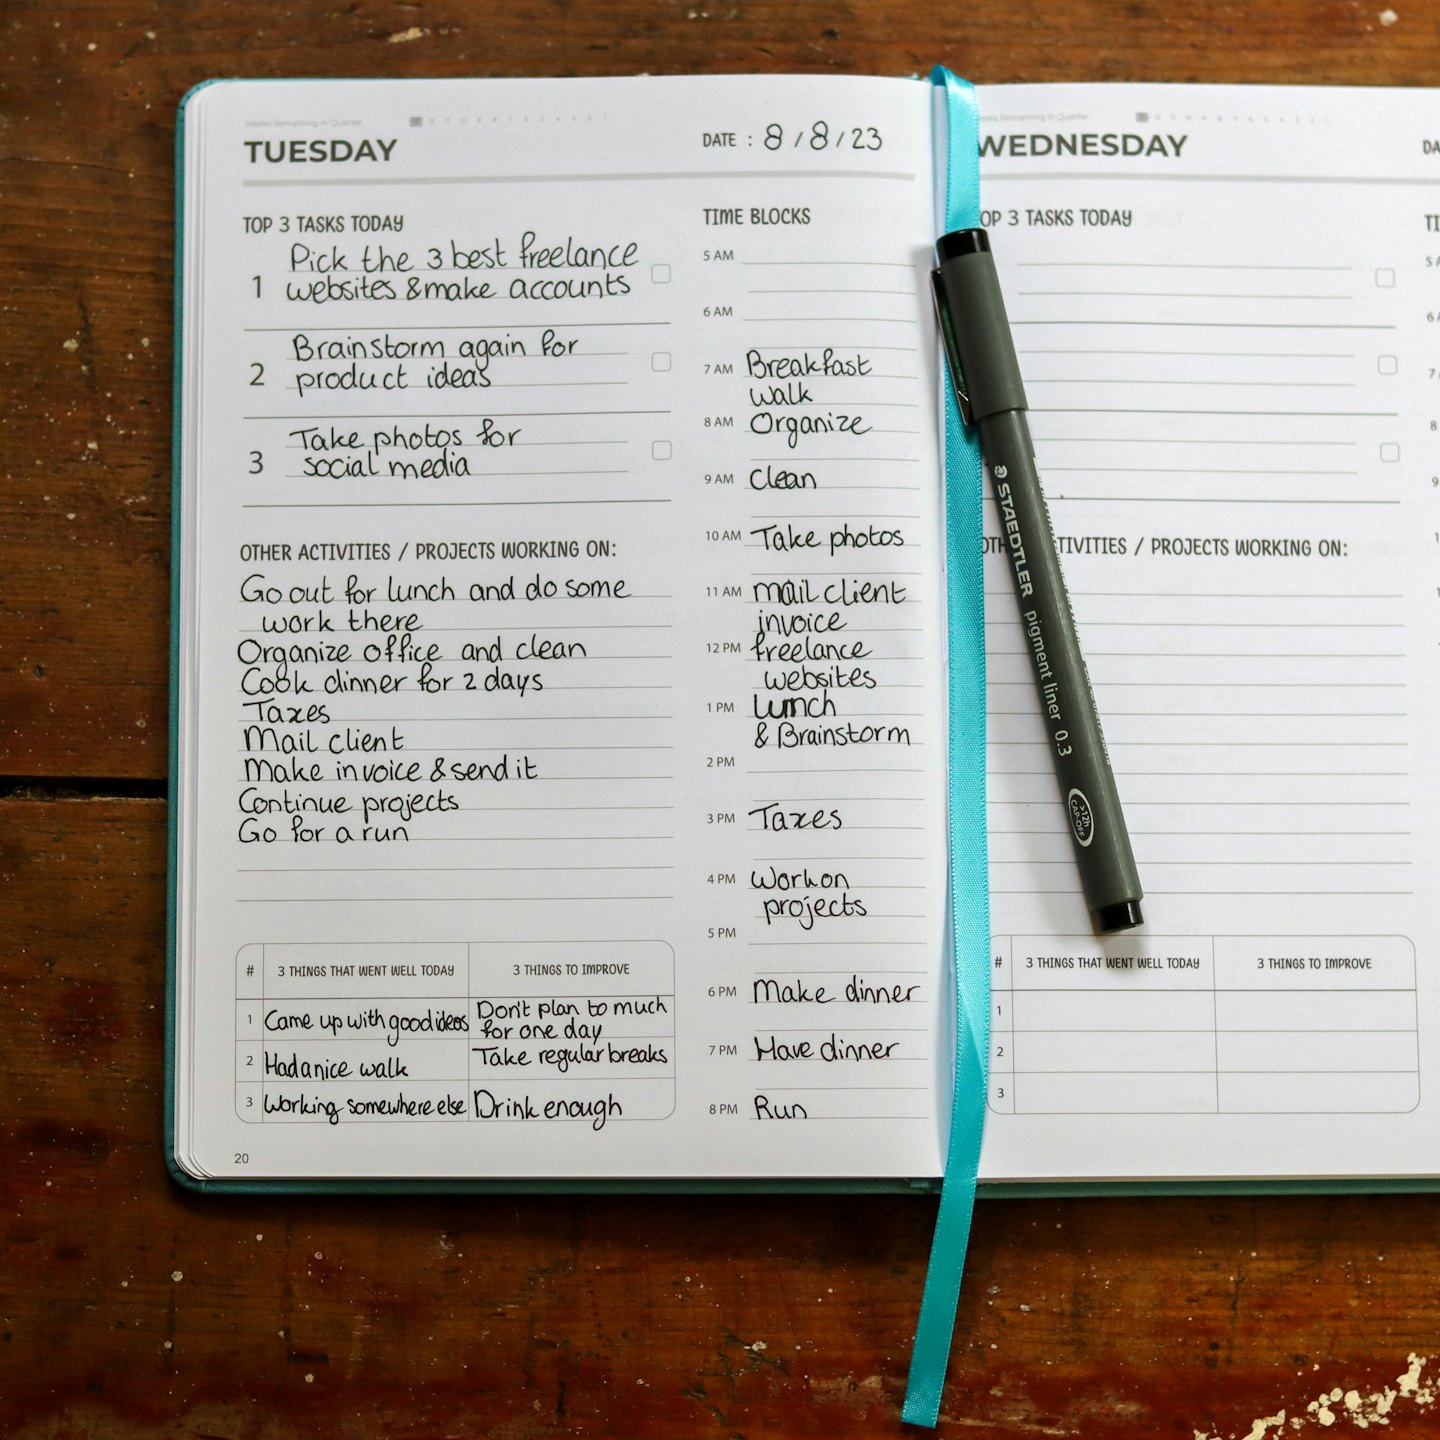 Weeks Remaining in Quarter
TUESDAY
DATE : 8/8/23
TOP 3 TASKS TODAY
1 Pick the 3 best freelance
websites & make accounts
2 Brainstorm again for
product ideas
3 Take photos for
social media
OTHER ACTIVITIES / PROJECTS WORKING ON:
Go out for lunch and do some
work there
Organize office and clean
Cook dinner for 2 days
Taxes
Mail client
Make invoice & send it
Continue projects
Go for a run
# 3 THINGS THAT WENT WELL TODAY 3 THINGS TO IMPROVE
1 Came up with good ideas Don't plan to much
for one day
2 Had a nice walk Take regular breaks
3 Working somewhere else Drink enough
20
TIME BLOCKS
5 AM
6 AM
7 AM Breakfast
walk
8 AM Organize
9 AM Clean
10 AM Take photos
11 AM mail client
invoice
12 PM freelance
websites
1 PM Lunch
& Brainstorm
2 PM
3 PM Taxes
4 PM Work on
projects
5 PM
6 PM Make dinner
7 PM Have dinner
8 PM Run
STAEDTLER pigment liner 0.3
>12h
CAP-OFF
Remaining in Quarter
WEDNESDAY
DA
OP 3 TASKS TODAY
OTH TIVITIES / PROJECTS WORKING ON:
# 3 THINGS THAT WENT WELL TODAY 3 THINGS TO IMPROVE
1
2
3
TI
5 A